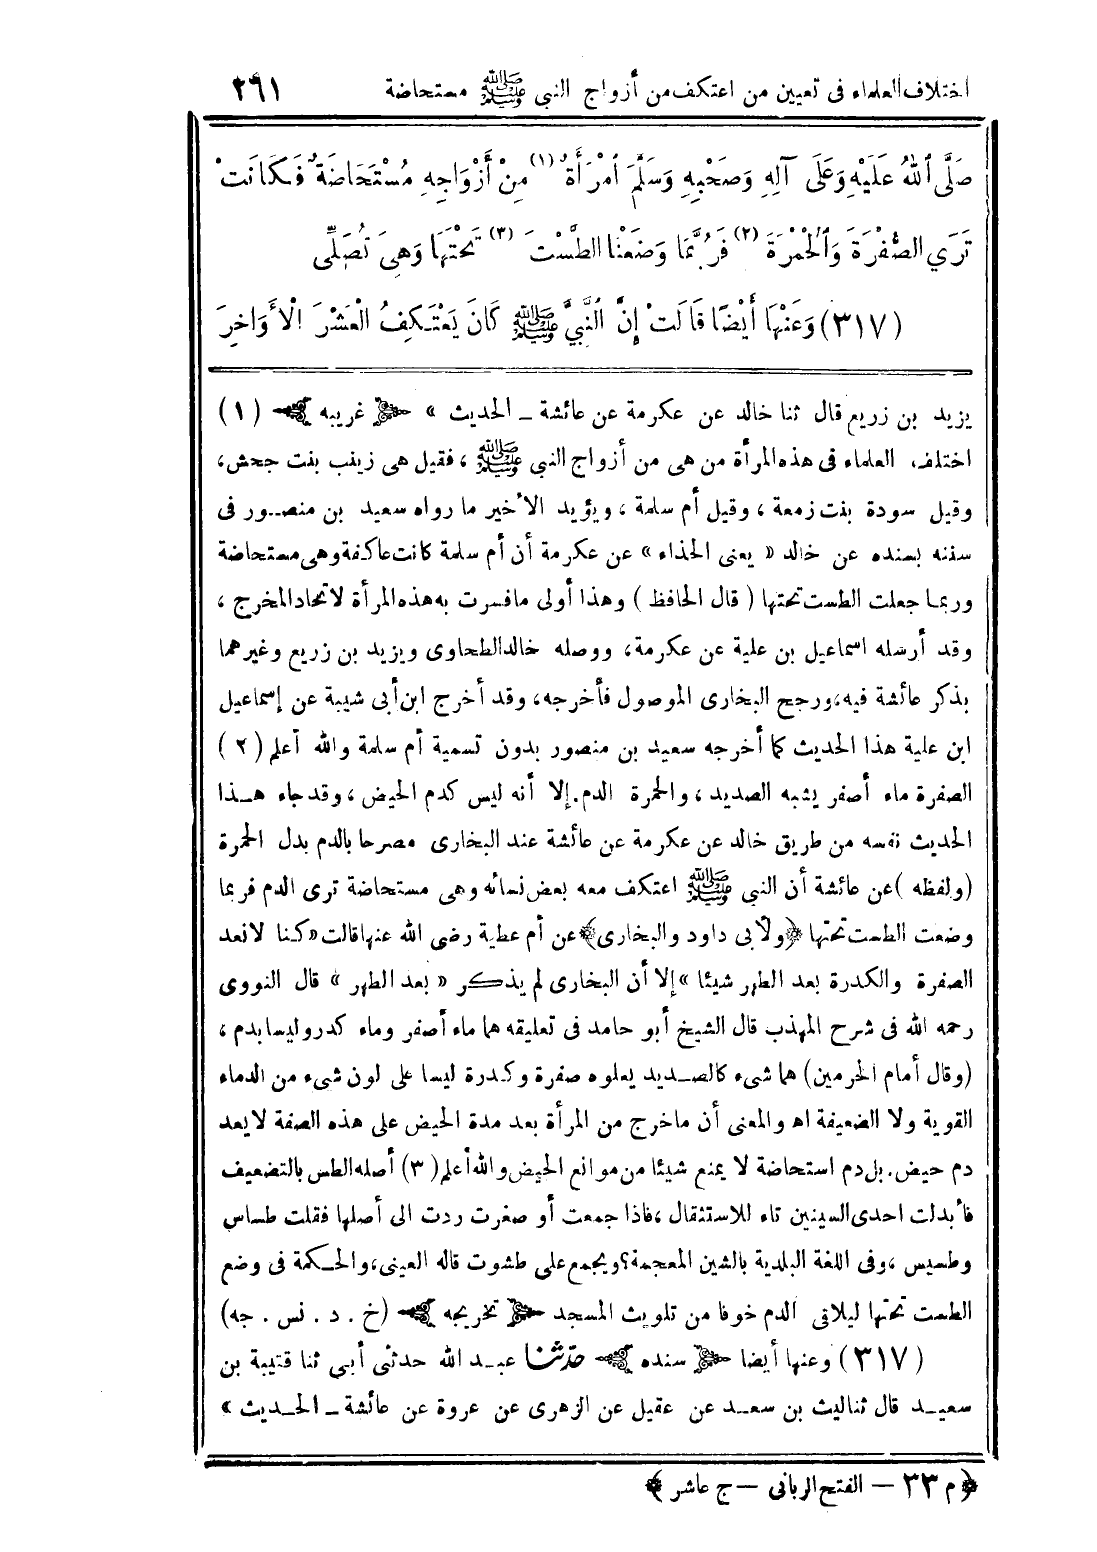 اختلاف العلماء فى تعيين من اعتكف من أزواج النبى ﷺ مستحاضة ٢٦١
صَلَّى ٱللهُ عَلَيْهِ وَعَلَى آلِهِ وَصَحْبِهِ وَسَلَّمَ ٱمْرَأَةٌ (١) مِنْ أَزْوَاجِهِ مُسْتَحَاضَةٌ فَكَانَتْ
تَرَي الصُّفْرَةَ وَٱلْحُمْرَةَ (٢) فَرُبَّمَا وَضَعْنَا الطَّسْتَ (٣) تَحْتَهَا وَهِىَ تُصَلِّى
(٣١٧) وَعَنْهَا أَيْضًا قَالَتْ إِنَّ النَّبِيَّ ﷺ كَانَ يَعْتَكِفُ الْعَشْرَ الْأَوَاخِرَ
يزيد بن زريع قال ثنا خالد عن عكرمة عن عائشة ـ الحديث » غريبه (١)
اختلف، العلماء فى هذه المرأة من هى من أزواج النبى ﷺ ، فقيل هى زينب بنت جحش،
وقيل سودة بنت زمعة ، وقيل أم سلمة ، ويؤيد الأخير ما رواه سعيد بن منصور فى
سننه بسنده عن خالد « يعنى الحذاء » عن عكرمة أن أم سلمة كانت عاكفة وهى مستحاضة
وربما جعلت الطست تحتها ( قال الحافظ ) وهذا أولى ما فسرت به هذه المرأة لاتحاد المخرج ،
وقد أرسله اسماعيل بن علية عن عكرمة، ووصله خالد الطحاوى ويزيد بن زريع وغيرهما
بذكر عائشة فيه، ورجح البخارى الموصول فأخرجه، وقد أخرج ابن أبى شيبة عن إسماعيل
ابن علية هذا الحديث كما أخرجه سعيد بن منصور بدون تسمية أم سلمة والله أعلم (٢)
الصفرة ماء أصفر يشبه الصديد ، والحمرة الدم. إلا أنه ليس كدم الحيض ، وقد جاء هـذا
الحديث نفسه من طريق خالد عن عكرمة عن عائشة عند البخارى مصرحا بالدم بدل الحمرة
(ولفظه) عن عائشة أن النبى ﷺ اعتكف معه بعض نسائه وهى مستحاضة ترى الدم فربما
وضعت الطست تحتها ﴿ولأبى داود والبخارى﴾ عن أم عطية رضى الله عنها قالت «كنا لا نعد
الصفرة والكدرة بعد الطهر شيئا » إلا أن البخارى لم يذكر « بعد الطهر » قال النووى
رحمه الله فى شرح المهذب قال الشيخ أبو حامد فى تعليقه هما ماء أصفر وماء كدر وليسا بدم ،
(وقال أمام الحرمين) هما شىء كالصـديد يعلوه صفرة وكدرة ليسا على لون شىء من الدماء
القوية ولا الضعيفة اهـ والمعنى أن ما خرج من المرأة بعد مدة الحيض على هذه الصفة لا يعد
دم حيض. بل دم استحاضة لا يمنع شيئا من موانع الحيض والله أعلم (٣) أصله الطس بالتضعيف
فأبدلت احدى السينين تاء للاستثقال ، فاذا جمعت أو صغرت ردت الى أصلها فقلت طساس
وطسيس ، وفى اللغة البلدية بالشين المعجمة؟ ويجمع على طشوت قاله العينى، والحـكمة فى وضع
الطست تحتها ليلاقى الدم خوفا من تلويث المسجد تخريجه (خ . د . نس . جه)
(٣١٧) وعنها أيضا سنده حدثنا عبـد الله حدثنى أبى ثنا قتيبة بن
سعيـد قال ثنا ليث بن سعـد عن عقيل عن الزهرى عن عروة عن عائشة ـ الحـديث »
﴿ م ٣٣ — الفتح الربانى — ج عاشر ﴾